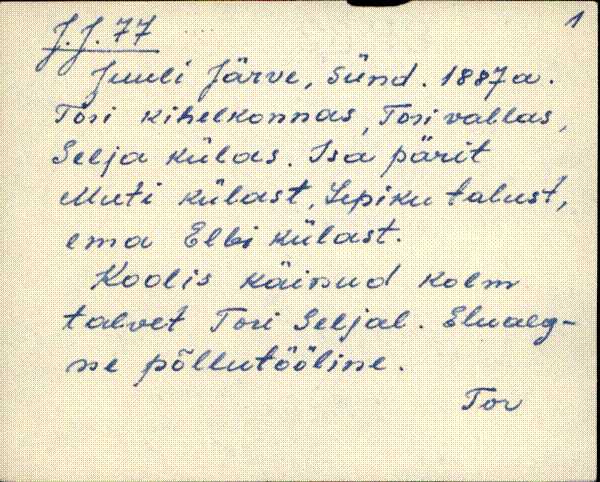 J.J. 77
1
Juuli Järve, sünd. 1887 a.
Tori kihelkonnas, Tori vallas,
Selja külas. Isa pärit
Muti külast, Lepiku talust,
ema Elbi külast.
Koolis käinud kolm
talvet Tori Seljal. Eluaeg-
ne põllutööline.
Tor